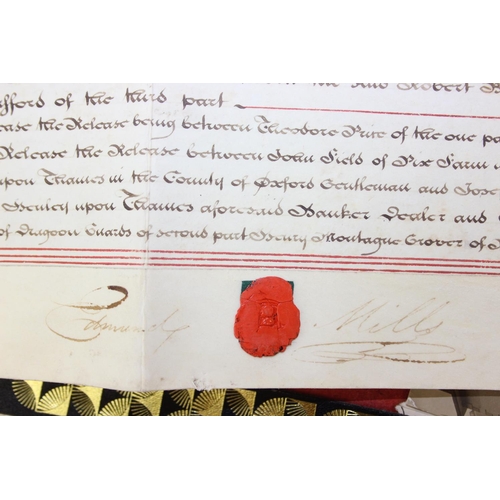 the said Robert B
fford of the third part
ease the Release being between Theodore Price of the one pa
Release the Release between John Field of Pix Farm
upon Thames in the County of Oxford Gentleman and Jose
Henley upon Thames aforesaid Banker Dealer and
of Dragoon Guards of second part Henry Montague Grover of
Edmund Mills